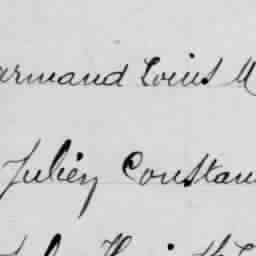 armand Louis M
Julien Constan